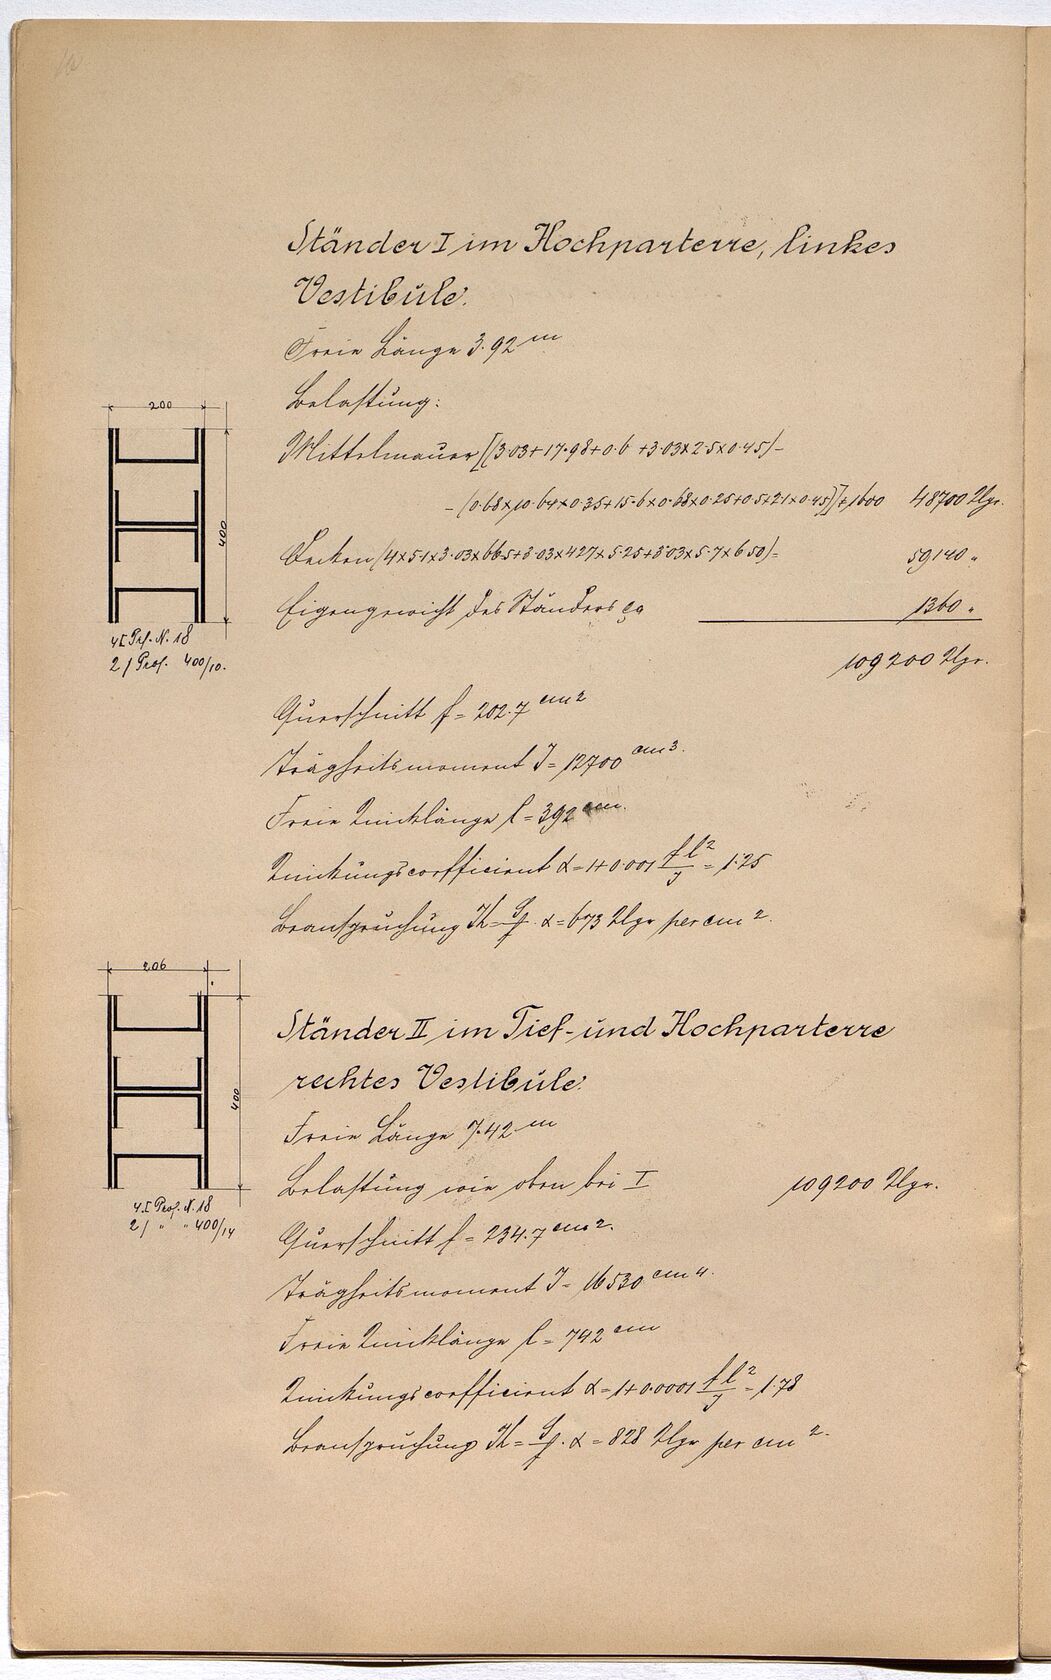 Ständer I im Hochparterre, linkes
Vestibule.
Freie Länge 3.92 m
Belastung:
200
Mittelmauer [(3.03+17.98+0.6 +3.03×2.5×0.45)-
-(0.68×10.64×0.35+15.6×0.68×0.25+0.5×21×0.45)]×1600 48700 Klgr.
400
Decken (4×5.1×3.03×665+3.03×427×5.25+3.03×5.7×650)= 59140 "
Eigengewicht des Ständers ca 1360 "
4 I Prf. N. 18
2 / Prof. 400/10.
109200 Klgr.
Querschnitt f = 202.7 cm2
Trägheitsmoment J = 12700 cm3.
Freie Knicklänge l = 392 cm.
Knickungscoefficient α = 1+0.001 fl2/J = 1.25
Beanspruchung K = G/f . α = 673 Klgr per cm2.
206
Ständer II im Tief- und Hochparterre
rechtes Vestibule.
400
Freie Länge 7.42 m
Belastung wie oben bei I 109200 Klgr.
4 I Prof. N. 18
2 / " " 400/14
Querschnitt f = 234.7 cm2.
Trägheitsmoment J = 16530 cm4.
Freie Knicklänge l = 742 cm
Knickungscoefficient α = 1+0.0001 fl2/J = 1.78
Beanspruchung K = G/f . α = 828 Klgr per cm2.